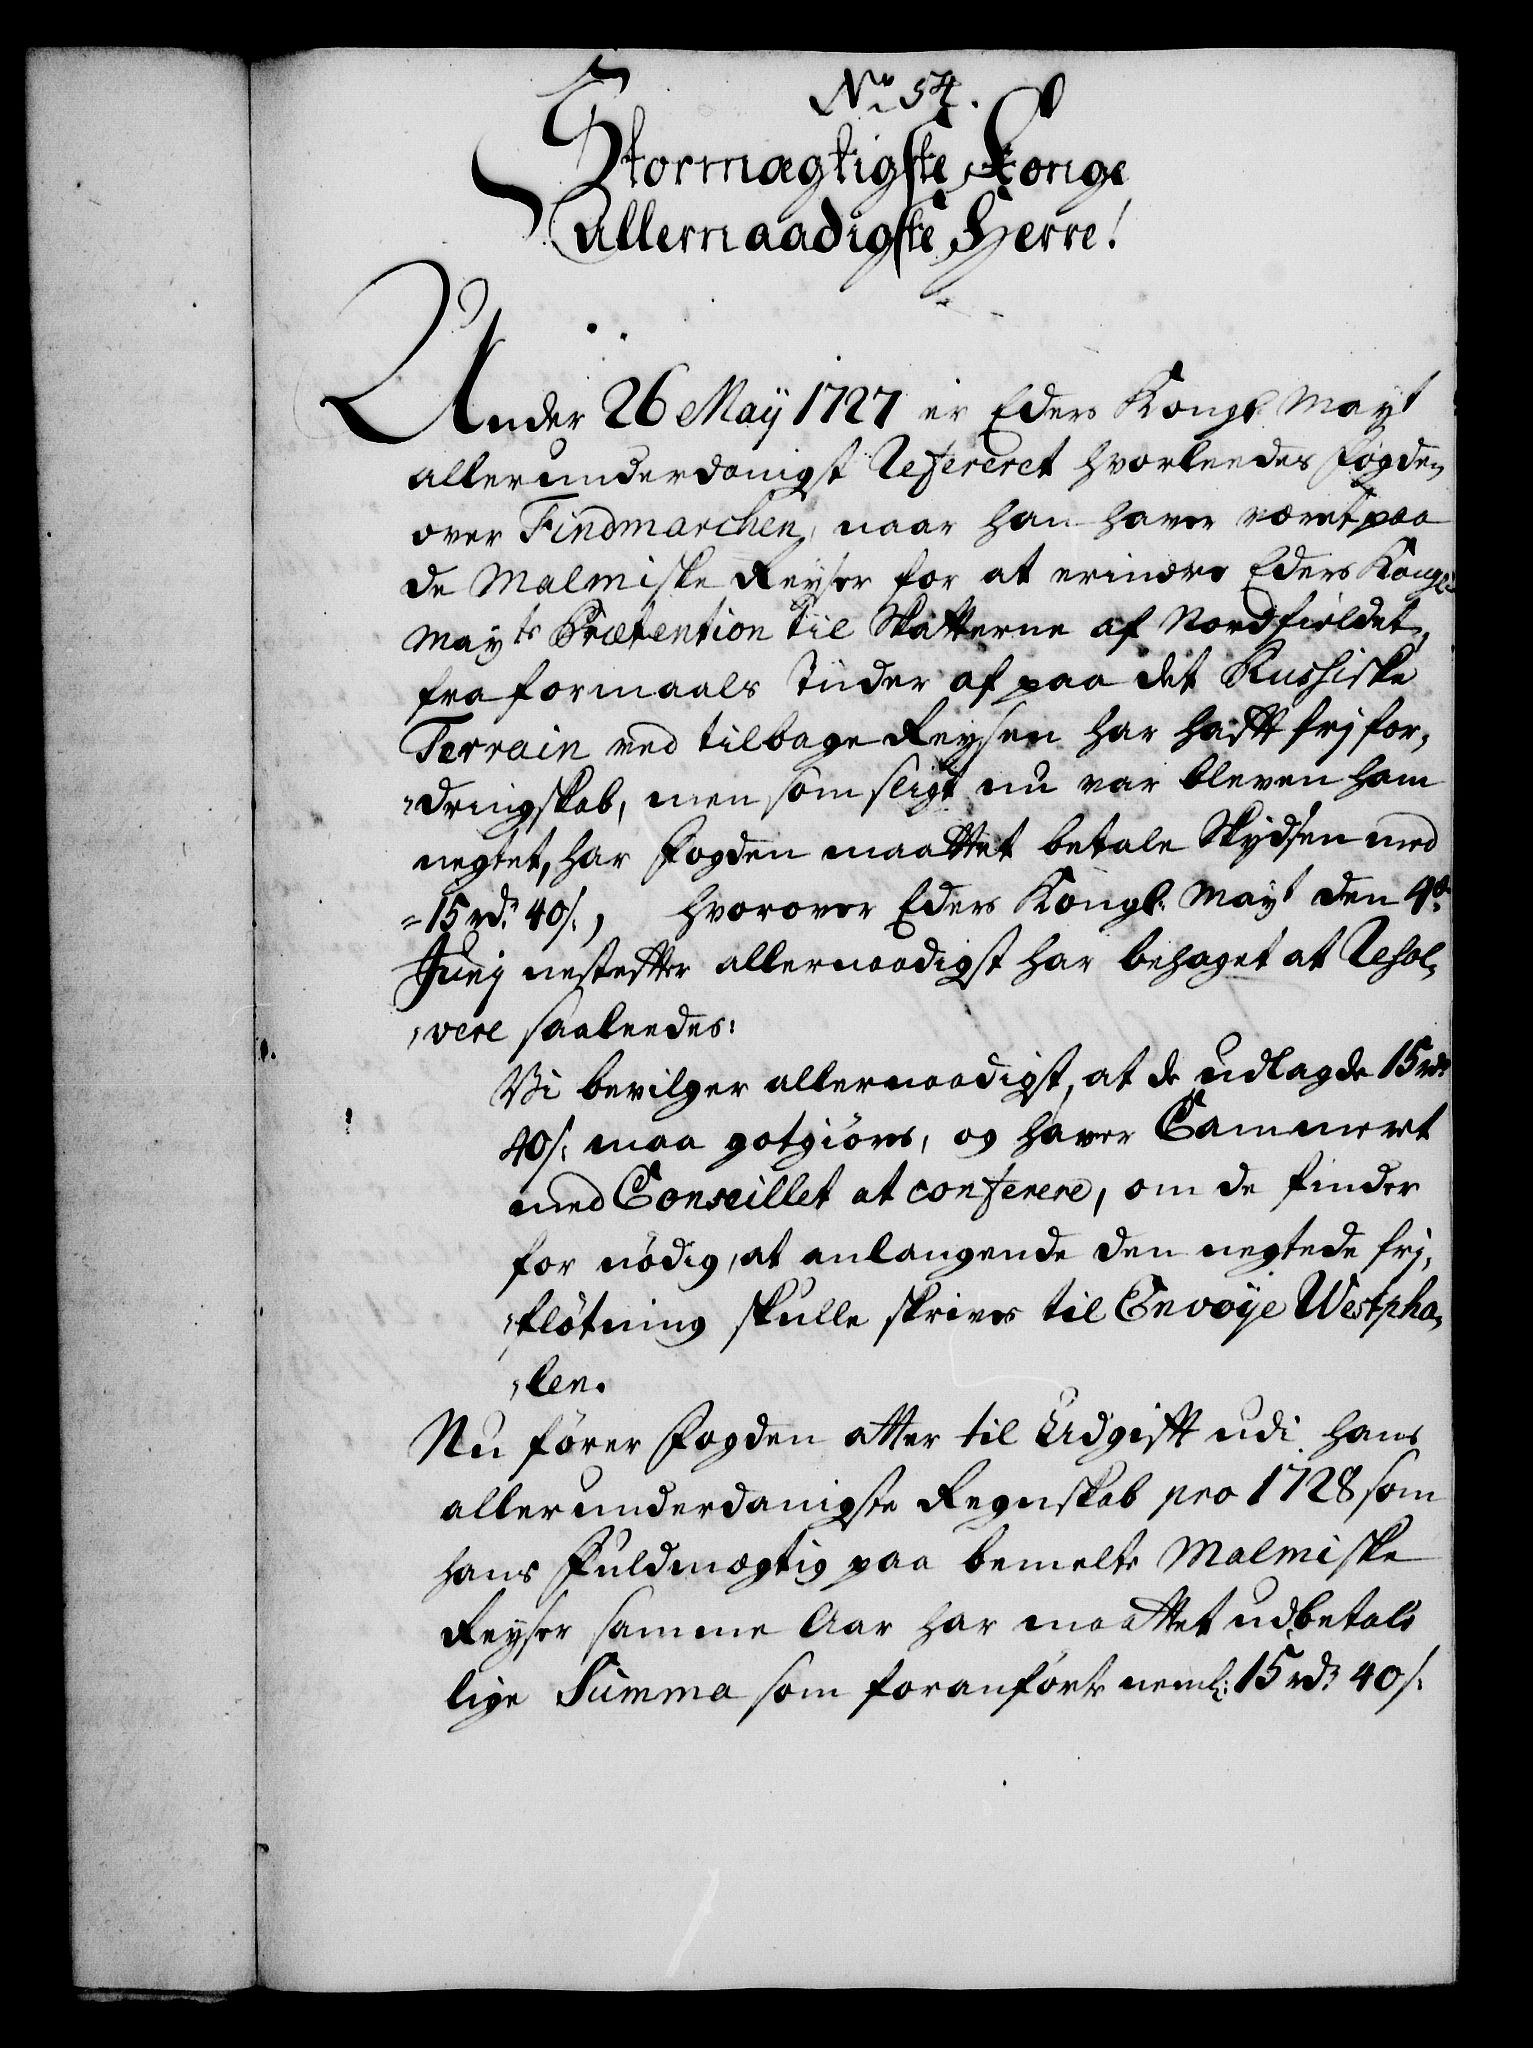 No 54.
Stormægtigste Konge
Allernaadigste Herre!
Under 26 Maÿ 1727 er Eders Kongl: Mayt
allerunderdanigst Refereret hvorleedes fogden
over Findmarchen, naar han haver været paa
de Malmiske Reyser for at erindre Eders Kongl:
Mayts Prætention til Skatterne af Nordfieldet,
fra formaals Tiider af paa det Russiske
Terrain ved tilbage Reysen har hafft frj for,
„dringskab, men som sligt nu var bleven ham
negtet, har Fogden maattet betale Skydsen med
=15 rdr 40 s:, hvorover Eders Kongl: Mayt den 4de
Junj nestefter allernaadigst har behaget at Resol,
„vere saaleedes:
Vi bevilger allernaadigst, at de udlagde 15 rdr
40 s: maa gotgiöres, og haver Cammeret
med Conseillet at conferere, om de finder
for nödig, at anlangende den negtede frj,
„flötning skulle skrives til Envoÿe Westpha,
„len.
Nu förer Fogden atter til Udgifft udi hans
allerunderdanigste Regnskab pro 1728 som
hans Fuldmægtig paa bemelte Malmiske
Reyser samme Aar har maattet udbetale
lige Summa som foranförte neml: 15 rdr 40 s: